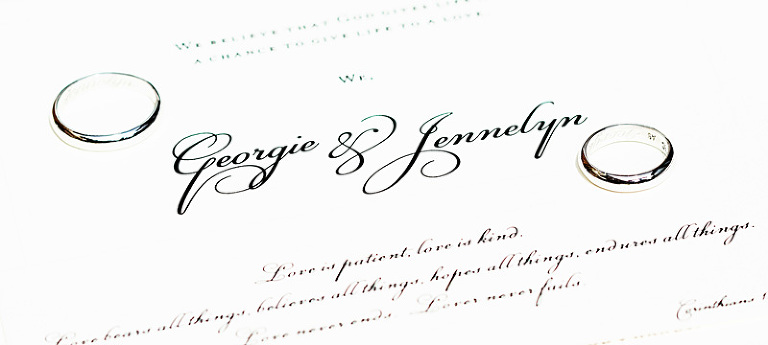 We believe that God gives life
a chance to give life to a love
We,
Georgie & Jennelyn
Love is patient, love is kind.
Love bears all things, believes all things, hopes all things, endures all things.
Love never ends. Lover never fails.
Corinthians 1